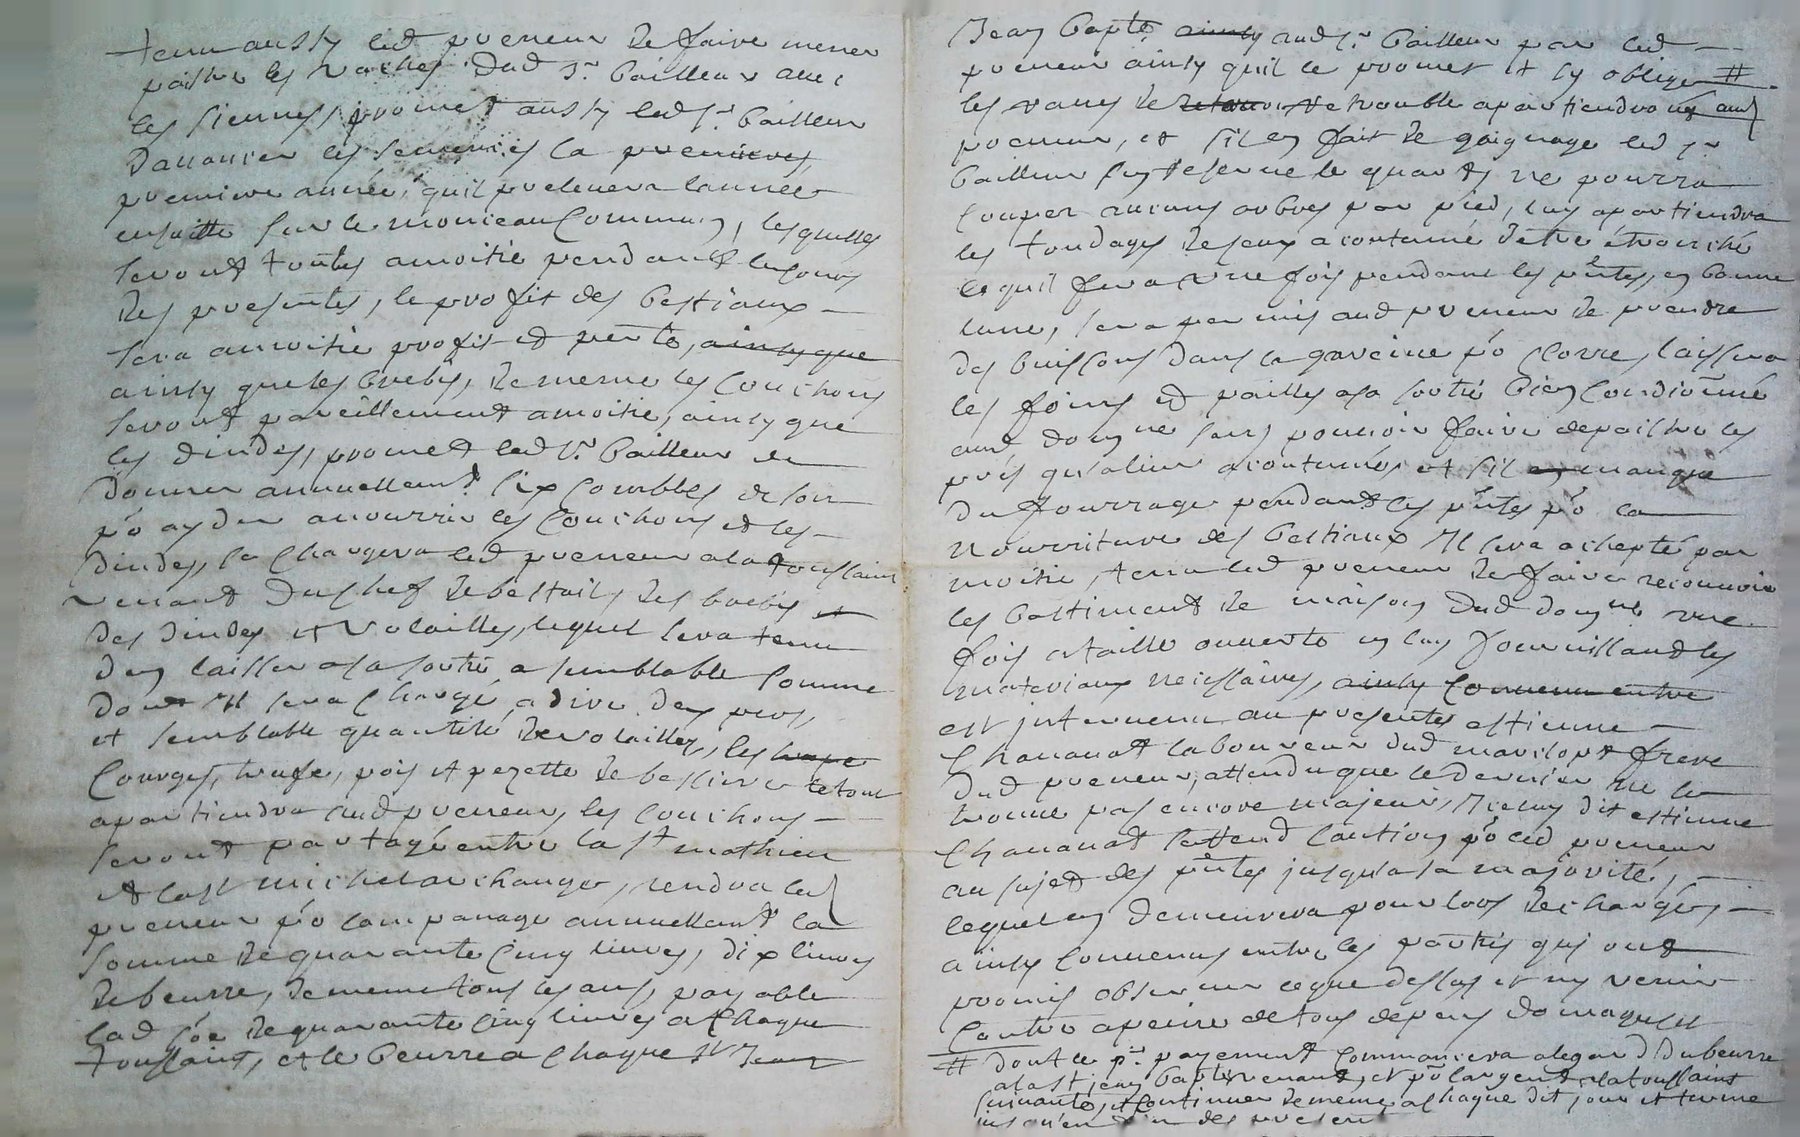 tenu aussy led preneur de faire mener
paistre les vaches dud Sr bailleur avec
les siennes, promet aussy led Sr bailleur
davancer les semences la premieres
premiere année, quil prelevera lannée
ensuitte sur le monceau commun, lesquelles
seront toutes amoitié pendant le cours
des presentes, le profit des bestiaux
sera amoitié profit et perte, ainsy que
ainsy que les brebys, de meme les couchons
seront pareillement amoitié, ainsy que
les dindes, promet led Sr bailleur de
donner annuellemt six combles de son
po ayder anourrir les couchons et les
dindes, se chargera led preneur ala toussaint
venant du chef de bestails des brebis et
des dindes et volailles, lequel sera tenu
den laisser asa sortie a semblable somme
dont il sera chargé a dire dexpers,
et semblable quantité de volailles, les
courges, trufe, pois et pezette de le tout
apartiendra aud preneur, les couchons
seront partagé entre la st mathieu
et la st michel archange, rendra led
preneur po lampanage annuellemt la
somme de quarante cinq livres, dix livres
de beurre, de meme tous les ans, payable
lad soe de quarante cinq livres a chaque
toussaint, et le beurre a chaque st Jean
Jean bapte ainsy aud Sr bailleur par led
preneur ainsy quil le promet et sy oblige #
les raves de trouble apartiendront aud
preneur, et sil en fait de gaignage led Sr
bailleur sen reserve le quart, ne pourra
couper aucuns arbres par pied, luy apartiendra
les tondages de ceux acoutumé detre ébranché
ce quil fera une fois pendant les pntes, en bonne
lune, sera permis aud preneur de prendre
des buissons dans la gareine po clorre, laissera
les foins et pailles asa sortie bien conditionné
aud domne sans pouvoir faire depaistre les
prés qualieur acoutumé, et sil en manque
du fourrage pendant les pntes po la
nourriture des bestiaux Il sera achepté par
moitié, tenu led preneur de faire recouvrir
les bastiment de maison dud domne une
fois ataille ouverte en luy fournissant les
materiaux necessaires, ainsy convenu entre
est intervenu au presentes estienne
Chavanat laboureur dud frere
dud preneur, attendu que le dernier ne se
trouve pas encore majeur, Iceluy dit estienne
Chavanat se rend caution po led preneur
au sujet des pntes jusqua sa majorité,
lequel en demeurera pour lors dechargés,
ainsy convenu entre les parties qui ont
promis observer ce que dessus et ny venir
contre apeine de tous depens domages et
# dont le pr payement commancera alegard du beurre
ala st jean bapte venant, et po largent ala toussaint
suivante, et continuer de meme a chaque dit jour et terme
jusqu'en fin des presentes